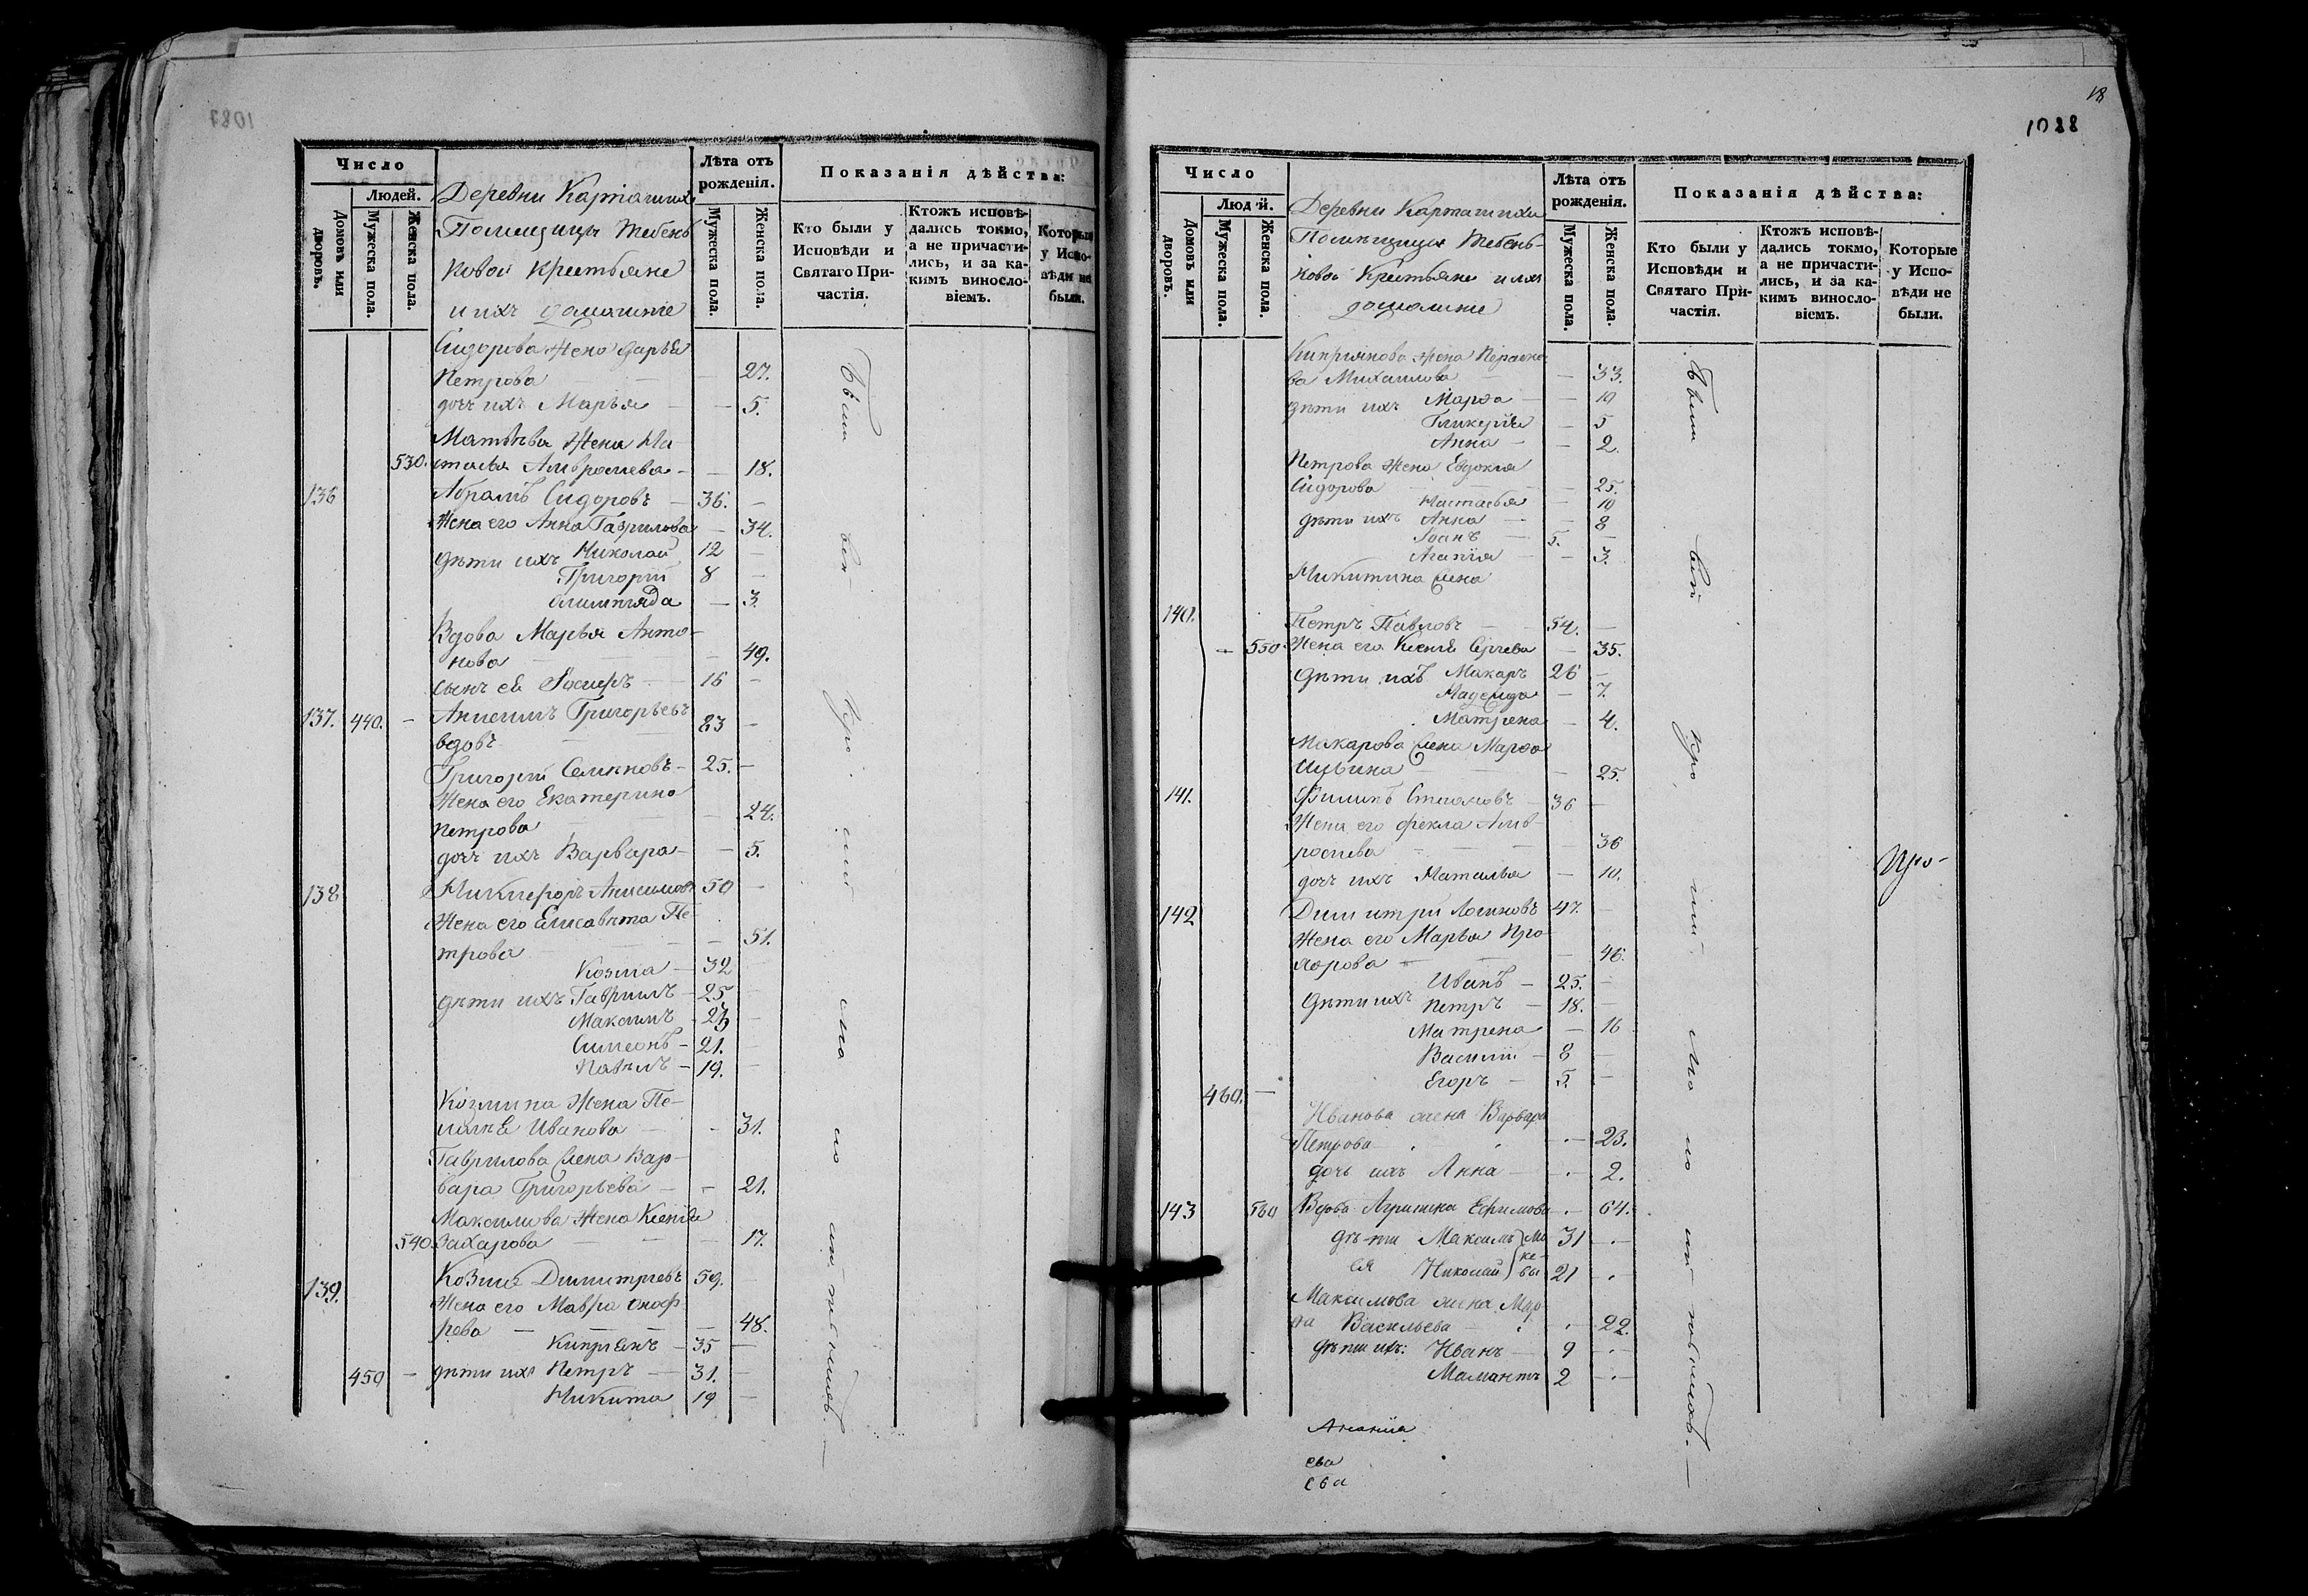 1087
Число
Людей.
Домовъ или дворовъ.
Мужеска пола.
Женска пола.
Деревни Карташихи
Помещицы Тебень
ковой крестьяне
и ихъ домашние
Лѣта отъ рожденія.
Мужеска пола.
Женска пола.
Показанія дѣйства:
Кто были у Исповѣди и Святаго При-частія.
Ктожъ исповѣ-дались токмо, а не причасти-лись, и за ка-кимъ винослo-віемъ.
Которые у Испо-вѣди не были.
Сидорова жена Дарья
Петрова — 27.
дочь ихъ Марья — — 5.
Матвѣева жена На
530. стасья Амвросиева — — 18.
136 Абрамъ Сидоровъ — 36. —
Жена его Анна Гаврилова — 34.
дѣти ихъ Николай 12 —
Григорий 8 —
Олимпиада — 3.
Вдова Марья Анто-
нова — — 49.
сынъ ея 16 —
137. 440. — Анисимъ Григорьевъ
вдовъ — 83 —
Григорий Семеновъ — 25. —
Жена его Екатерина
Петрова — 24.
дочь ихъ Варвара — — 5.
138 Никифоръ Анисимовъ 50 —
Жена его Елисавета Пе-
трова — — 51.
Козма — 32
дѣти ихъ Гаврилъ — 25
Максимъ — 23 —
Симеонъ — 21. —
Павелъ — 19. —
Козмина жена Пе-
лагея Иванова — - 31.
Гаврилова жена Вар-
вара Григорьева — - 21.
Максимова жена Ксения
540. Захарова — — 17.
139. Козма Димитриевъ 59.
Жена его Мавра Оноф-
рева — — 48.
Киприянъ — 35 —
450 — дѣти ихъ Петръ — 31. —
Никита 19 —
18
1088
Число
Людей.
Домовъ или дворовъ.
Мужеска пола.
Женска пола.
Деревни Карташихи
Помещицы Тебень-
ковой Крестьяне и ихъ
домашние
Лѣта отъ рожденія.
Мужеска пола.
Женска пола.
Показанія дѣйства:
Кто были у Исповѣди и Святаго При-частія.
Ктожъ исповѣ-дались токмо, а не причасти-лись, и за ка-кимъ винослo-віемъ.
Которые у Испо-вѣди не были.
Киприянова жена Параске
ва Михаилова — — 33.
дѣти ихъ Марѳа — — 10
Гликерия — 5
Анна — — 2.
Петрова жена Евдокия
Сидорова — 25.
Настасья — 10
дѣти ихъ Анна — — 8
Иоанъ — 5. —
Агапия — — 3.
Никитина жена
140. Петръ Павловъ — 54. —
— 550 Жена его Ксения Сергеева — 35.
дѣти ихъ Макаръ 26 —
Надежда — 7.
Матрена — 4.
Макарова жена Марѳа
Ильина — — 25.
141. Филипъ Степановъ — 36 —
Жена его Фекла Амв-
росиева — — 36
дочь ихъ Наталья — 10.
142 Димитрий Логиновъ 47. —
Жена его Марья Про-
хорова — — 46.
Иванъ — 25. —
Дѣти ихъ Петръ — 18. —
Матрена — 16
Василий — 8 —
460. — Егоръ — 5. —
Иванова жена Варвара
Петрова — 23.
дочь ихъ Анна — 2.
143 560 Вдова Агрипина Ефимова — 64.
дѣ-ти Максимъ 31 —
ея Николай 21 —
Максимова жена Мар-
ѳа Васильева — 22.
дѣти ихъ: Иванъ — 9 —
Мамантъ 2 —
Анания
ева
ева